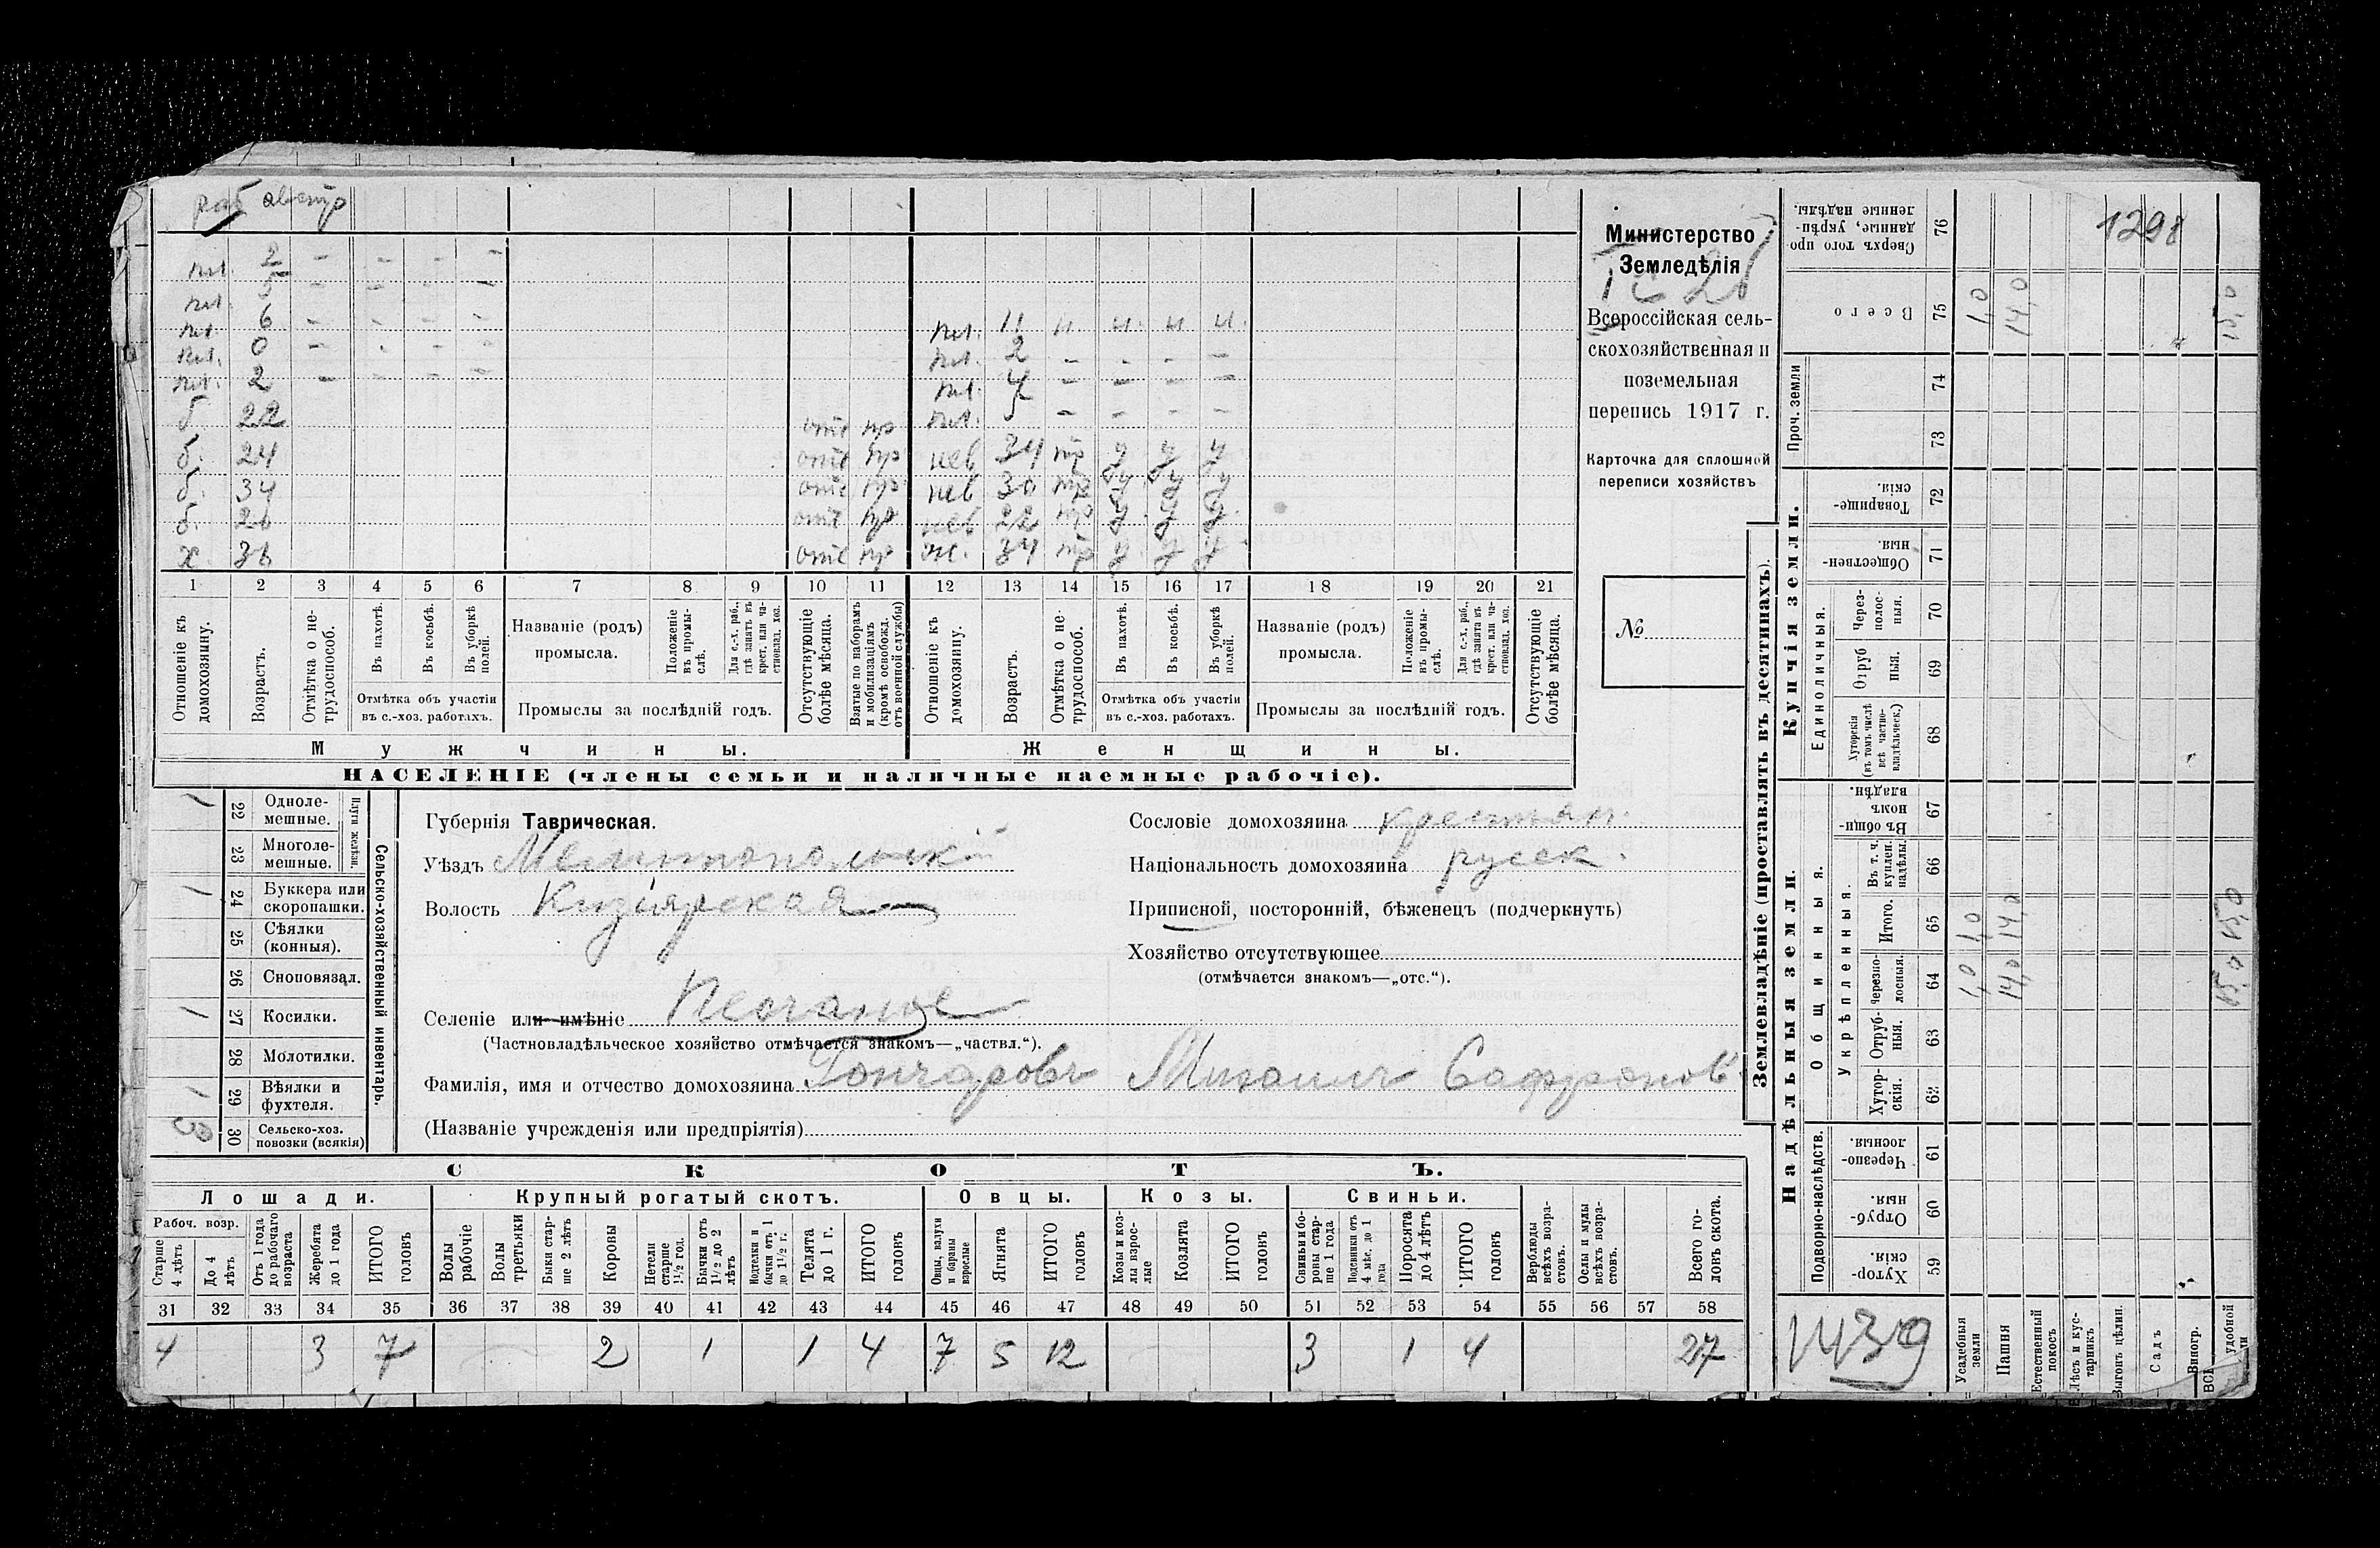 раб австр
пл. 2 - - - -
пл. 5 - - - -
пл. 6 - - - -
пл. 0 - - - -
пл. 2 - - - -
б. 22 отс пр
б. 24 отс пр
б. 34 отс пр
б. отс пр
х отс пр
пл. 11 н. н. н. н.
пл. 2 - - - -
пл. 4 - - - -
пл. 5 - - - -
нев 34 пр у у у
нев 30 пр у у у
нев 22 пр у у у
ж. 34 пр у у у
1 2 3 4 5 6 7 8 9 10 11 12 13 14 15 16 17 18 19 20 21
Отношеніе къ домохозяину.
Возрастъ.
Отмѣтка о не-трудоспособ.
Въ пахотѣ.
Въ косьбѣ.
Въ уборкѣ полей.
Отмѣтка объ участіи
въ с.-хоз. работахъ.
Названіе (родъ)
промысла.
Положеніе въ промы-слѣ.
Для с.-х. раб., гдѣ занятъ въ крест. или ча-стновлад. хоз.
Промыслы за послѣдній годъ.
Отсутствующіе болѣе мѣсяца.
Взятые по наборамъ и мобилизаціямъ (кромѣ освобожд. отъ военной службы)
Отношеніе къ домохозяину.
Возрастъ.
Отмѣтка о не-трудоспособ.
Въ пахотѣ.
Въ косьбѣ.
Въ уборкѣ полей.
Отмѣтка объ участіи
въ с.-хоз. работахъ.
Названіе (родъ)
промысла.
Положеніе въ промы-слѣ.
Для с.-х. раб., гдѣ занята въ крест. или ча-стновлад. хоз.
Промыслы за послѣдній годъ.
Отсутствующіе болѣе мѣсяца.
Мужчины. Женщины.
НАСЕЛЕНІЕ (члены семьи и наличные наемные рабочіе).
Министерство
Земледѣлія
Всероссійская сель-
скохозяйственная и
поземельная
перепись 1917 г.
Карточка для сплошной
переписи хозяйствъ
№
Плуги желѣзн.
22 Одноле-мешные. 1
23 Многоле-мешные.
24 Буккера или скоропашки. 1
25 Сѣялки (конныя).
26 Сноповязал.
27 Косилки. 1
28 Молотилки.
29 Вѣялки и фухтеля. 1
30 Сельско-хоз. повозки (всякія) 3
Сельско-хозяйственный инвентарь.
Губернія Таврическая.
Уѣздъ Мелитопольскій
Волость Кизіярская
Селеніе или имѣніе Песчаное
(Частновладѣльческое хозяйство отмѣчается знакомъ—„частвл.“).
Фамилія, имя и отчество домохозяина Гончаровъ Михаилъ Сафронов
(Названіе учрежденія или предпріятія)
Сословіе домохозяина крестьян.
Національность домохозяина русск.
Приписной, посторонній, бѣженецъ (подчеркнуть)
Хозяйство отсутствующее
(отмѣчается знакомъ—„отс.“).
СКОТЪ.
Лошади. Крупный рогатый скотъ. Овцы. Козы. Свиньи.
Рабоч. возр.
Старше 4 лѣтъ
До 4 лѣтъ
Отъ 1 года до рабочаго возраста
Жеребята до 1 года
ИТОГО головъ
Волы рабочіе
Волы третьяки
Быки стар-ше 2 лѣтъ
Коровы
Нетели старше 1½ год.
Бычки отъ 1½ до 2 лѣтъ
Подтелки и бычки отъ 1 до 1½ г.
Телята до 1 г.
ИТОГО головъ
Овцы, валухи и бараны взрослые
Ягнята
ИТОГО головъ
Козы и коз-лы взрос-лые
Козлята
ИТОГО головъ
Свиньи и бо-ровы стар-ше 1 года
Подсвинки отъ 4 мѣс. до 1 года
Поросята до 4 лѣтъ
ИТОГО головъ
Верблюды всѣхъ возра-стовъ.
Ослы и мулы всѣхъ возра-стовъ.
Всего го-ловъ скота.
31 32 33 34 35 36 37 38 39 40 41 42 43 44 45 46 47 48 49 50 51 52 53 54 55 56 57 58
4 3 7 2 1 1 4 7 5 12 3 1 4 27
Землевладѣніе (проставлять въ десятинахъ).
1298
Сверхъ того про-данные, укрѣп-ленные надѣлы. 76
Всего 75 1,0 14,0 15,0
Проч. земли
74
73
Купчія земли.
Товарище-скія. 72
Обществен-ныя. 71
Единоличныя.
Через-полос-ныя. 70
Отруб ныя. 69
Хуторскія (въ томъ числѣ всѣ частно-владѣльческ.) 68
Надѣльныя земли.
Общинныя.
Въ общи-номъ владѣн. 67
Укрѣпленныя.
Въ т. ч. куплен. надѣлы. 66
Итого. 65 1,0 14,0 15,0
Черезпо-лосныя. 64 1,0 14,0 15,0
Отруб-ныя. 63
Хутор-скія. 62
Подворно-наслѣдств.
Черезпо-лосныя 61
Отруб-ныя. 60
Хутор-скія. 59
1439
Усадебныя земли
Пашня
Естественный покосъ
Лѣсъ и кус-тарникъ
Выгонъ цѣлин.
Садъ
Виногр.
удобной